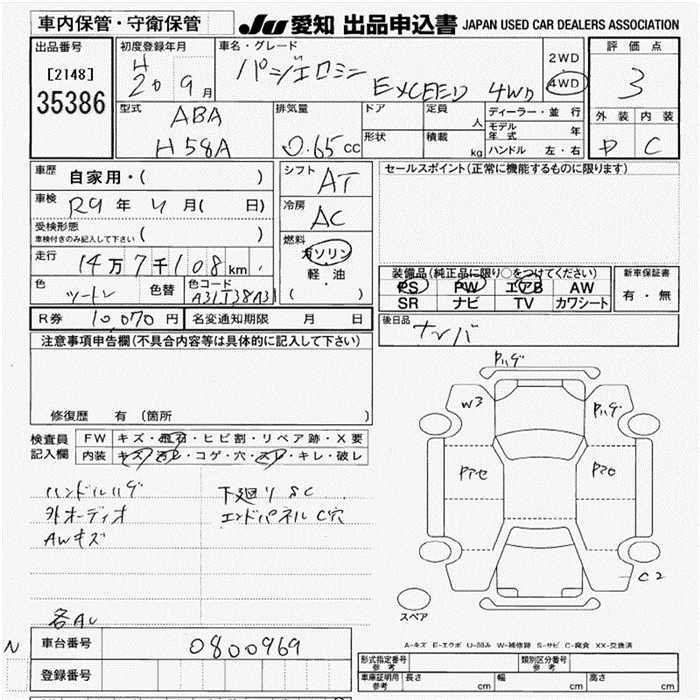 車内保管・守衛保管
JU 愛知 出品申込書 JAPAN USED CAR DEALERS ASSOCIATION
出品番号
[2148]
35386
初度登録年月
H
20 9月
車名・グレード
パジェロミニ
EXCEED 4WD
2WD
4WD
評価点
3
外装 内装
D C
型式
ABA
H58A
排気量
0.65cc
ドア
形状
定員 人
積載 kg
ディーラー・並行
モデル年式 年
ハンドル 左・右
車歴
自家用・( )
車検
R9年 4月( 日)
受検形態
車検付きのみ記入して下さい ( )
走行
14万7千108km
色
ツートン
色替
色コード
A31T38A31
シフト
AT
冷房
AC
燃料
ガソリン
軽・油
( )
セールスポイント(正常に機能するものに限ります)
装備品(純正品に限り○をつけてください)
PS PW エアB AW
SR ナビ TV カワシート
新車保証書
有・無
R券 10,070円 名変通知期限 月 日
後日品
ナンバ
注意事項申告欄(不具合内容等は具体的に記入して下さい)
修復歴 有(箇所
検査員
記入欄
FW キズ・飛石・ヒビ割・リペア跡・X要
内装 キズ・汚レ・コゲ・穴・スレ・キレ・破レ
ハンドルハゲ
外オーディオ
AWキズ
下廻りSC
エンドパネルC穴
各AU
Pハゲ
W3
Pハゲ
Pアセ
C2
スペア
A-キズ E-エクボ U-凹み W-補修跡 S-サビ C-腐食 XX-交換済
N
車台番号
0800969
登録番号
形式指定番号
参考
類別区分番号
参考
車庫証明用
参考
長さ cm
幅 cm
高さ cm